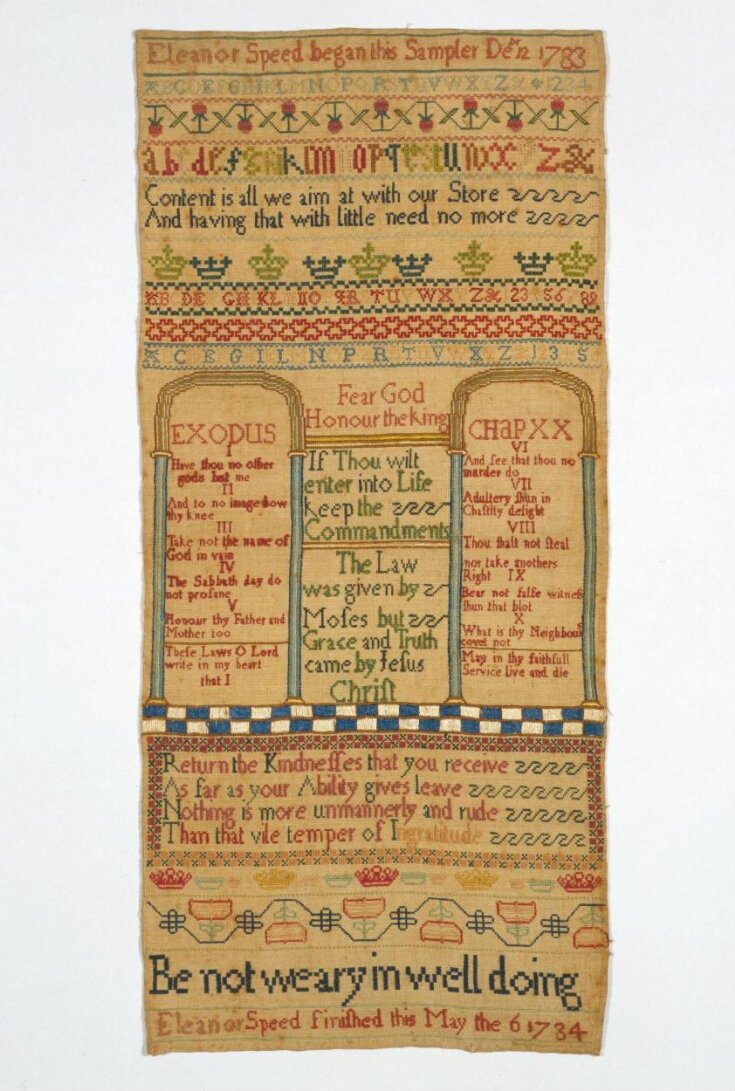 Eleanor Speed began this Sampler Dec 12 1783
A C E G I L N P R T V X Z 2 3 4
a b d e f g h k m o p q r s t u w x z &
Content is all we aim at with our Store
And having that with little need no more
AB DE GH KL NO QR TU WX Z& 23 56 89
A C E G I L N P R T V X Z 1 3 5
EXODUS
I
Have thou no other
gods but me
II
And to no image bow
thy knee
III
Take not the name of
God in vain
IV
The Sabbath day do
not profane
V
Honour thy Father and
Mother too
Theſe Laws O Lord
write in my heart
that I
Fear God
Honour the king
If Thou wilt
enter into Life
keep the
Commandments
The Law
was given by
Moſes but
Grace and Truth
came by Jeſus
Chriſt
CHaPXX
VI
And ſee that thou no
murder do
VII
Adultery ſhun in
Chaſtity delight
VIII
Thou ſhalt not ſteal
nor take anothers
Right IX
Bear not falſe witneſs
ſhun that blot
X
What is thy Neighbour
covet not
May in thy faithfull
Service live and die
Return the Kindneſſes that you receive
As far as your Ability gives leave
Nothing is more unmannerly and rude
Than that vile temper of Ingratitude
Be not weary in well doing
Eleanor Speed finiſhed this May the 6 1734